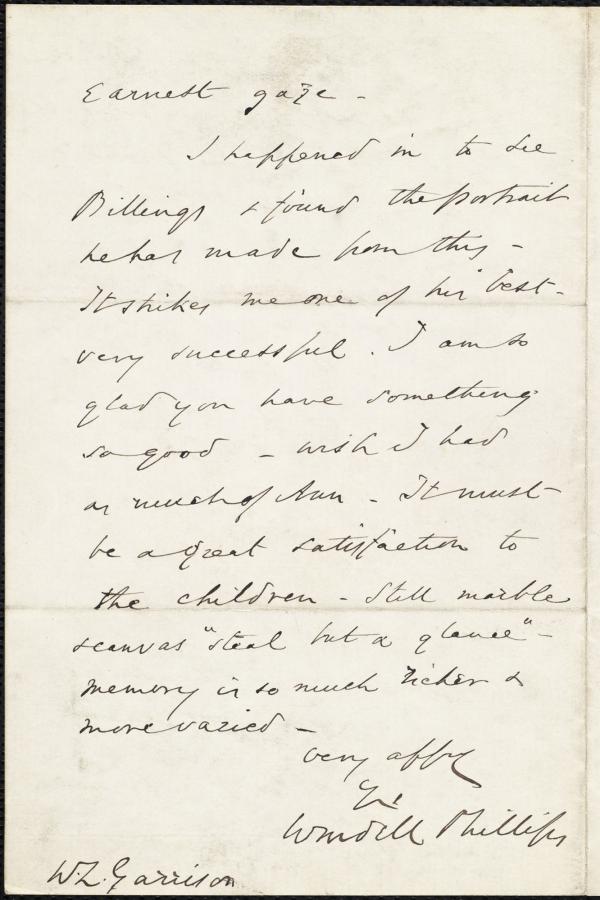 Earnest gaze -
I happened in to see
Billings & found the portrait
he has made from this -
It strikes me one of his best -
very successful. I am so
glad you have something
so good - wish I had
as much of Ann - It must
be a great satisfaction to
the children - Still marble
& canvas "steal but a glance" -
memory is so much richer &
more varied -
very affly
Yrs
Wendell Phillips
W.L. Garrison